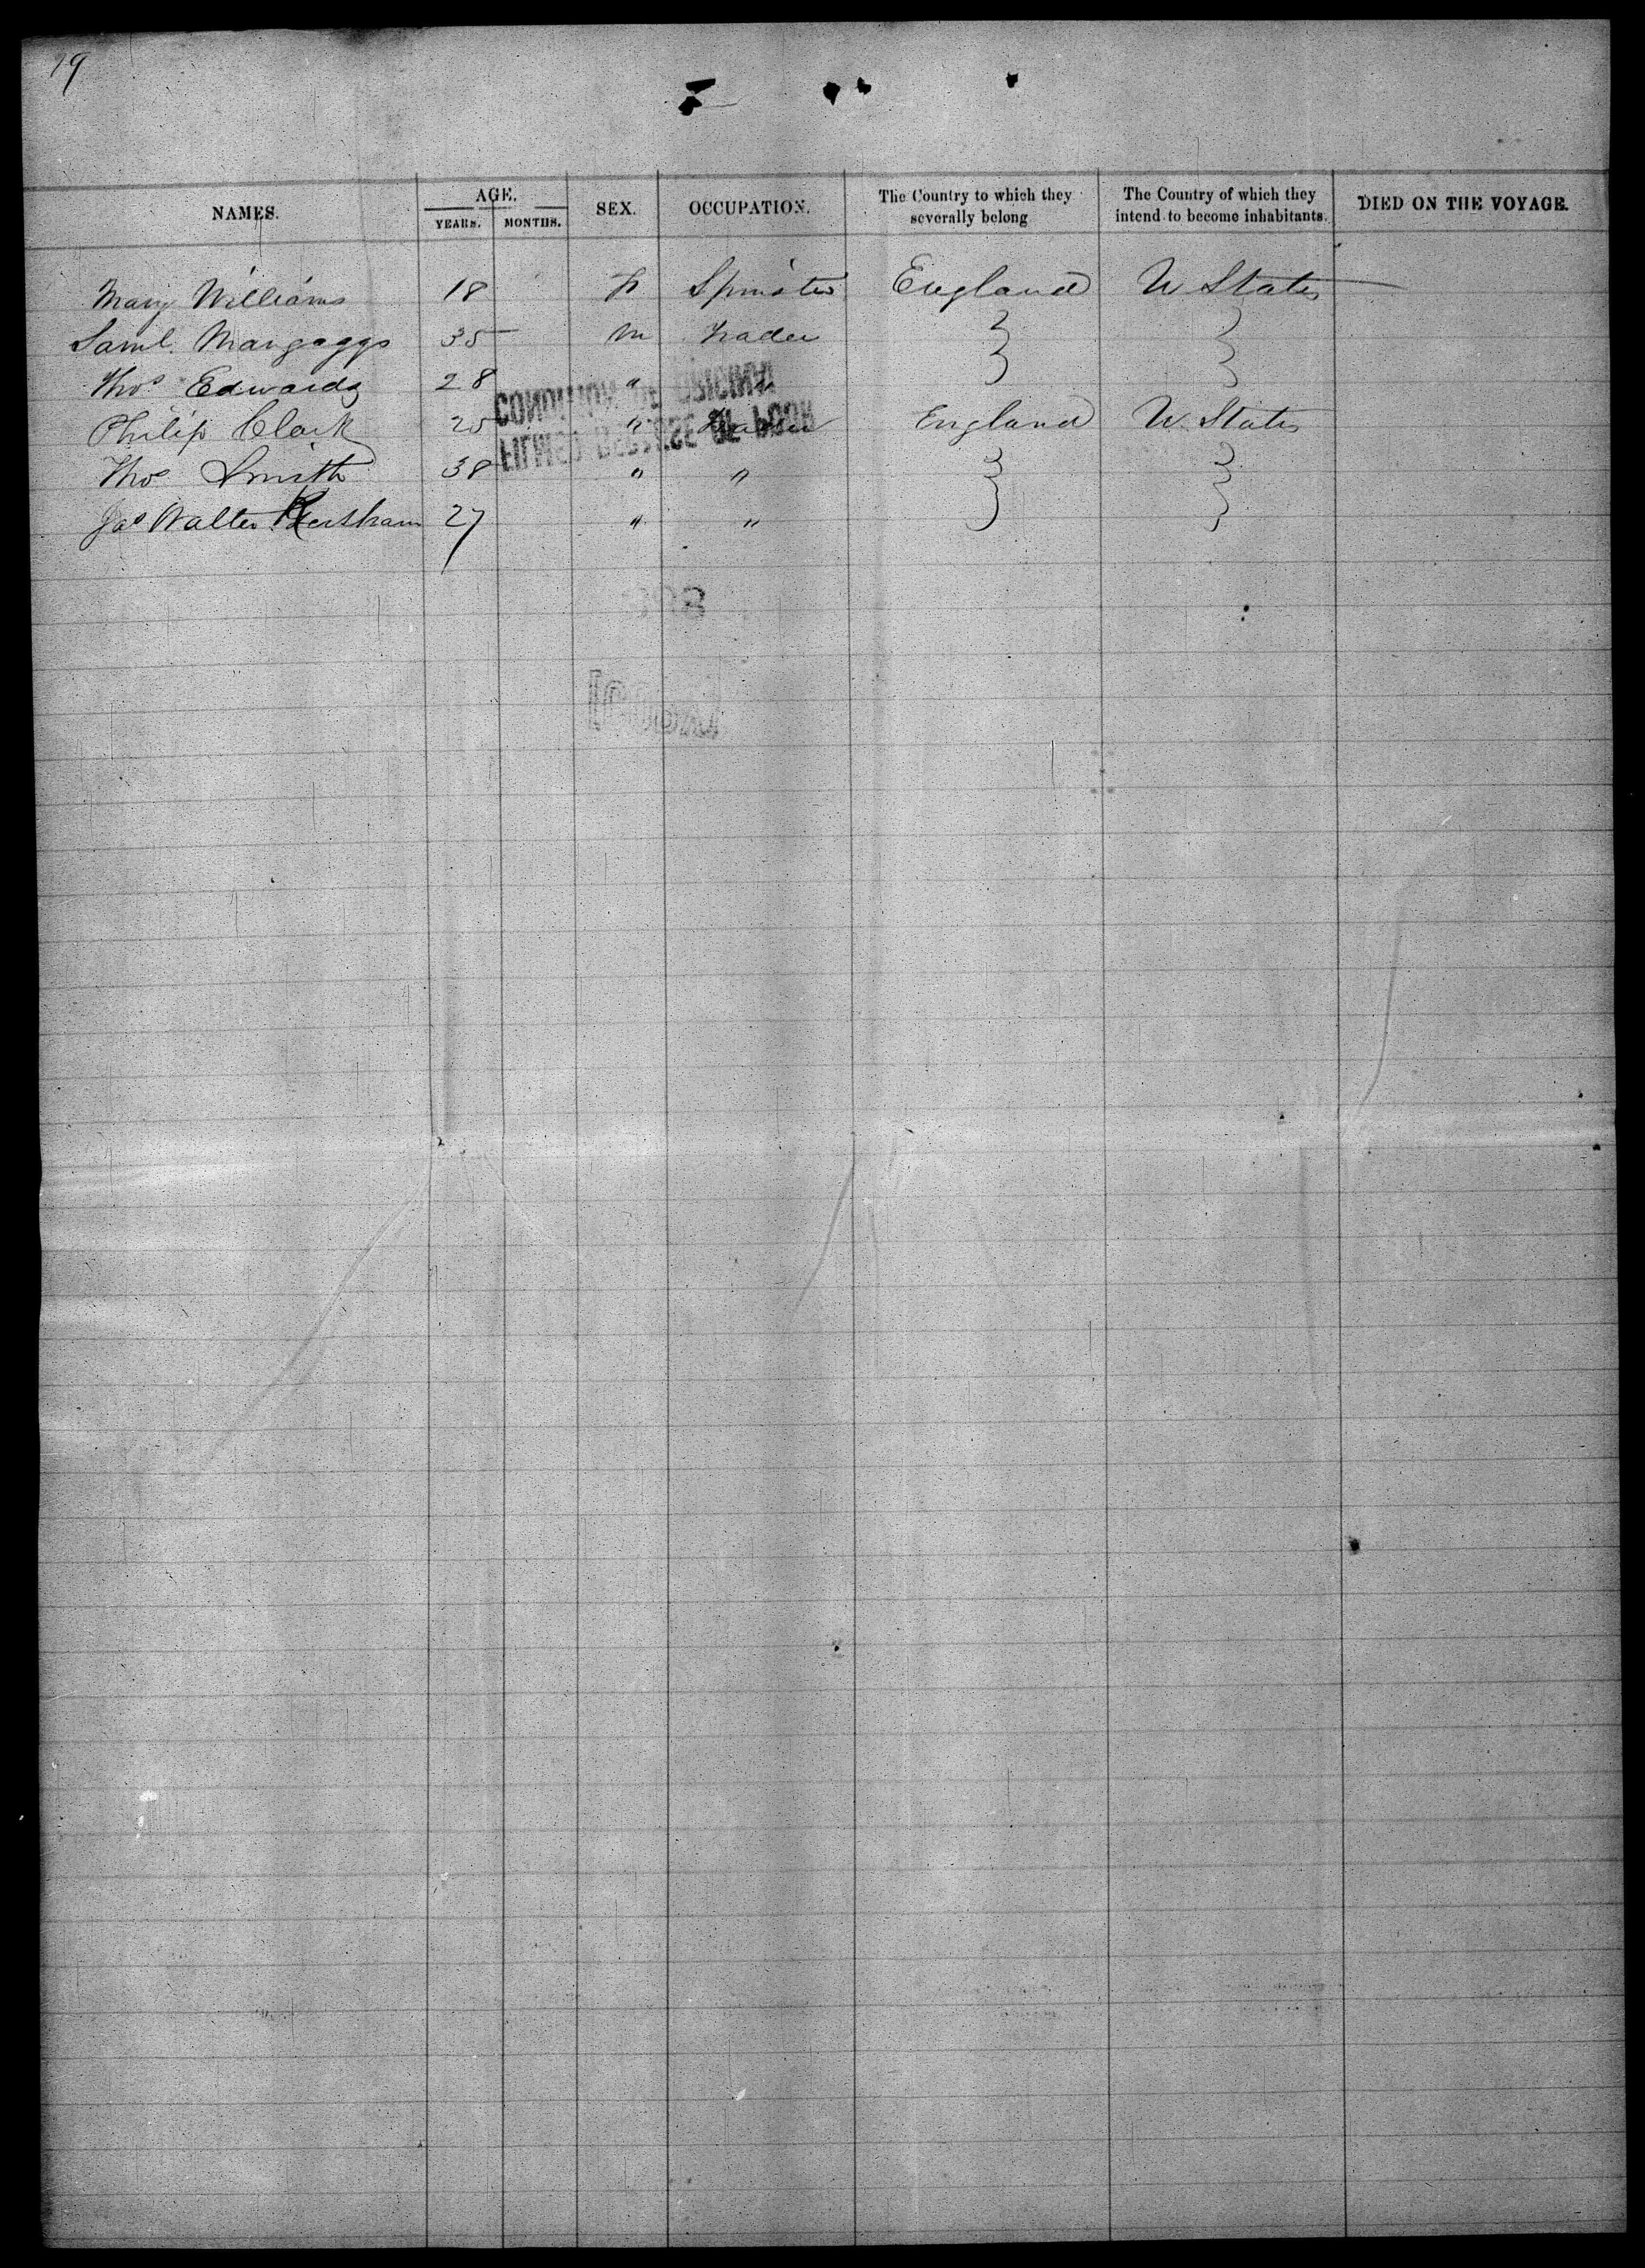 19
NAMES. AGE. YEARS. MONTHS. SEX. OCCUPATION. The Country to which they severally belong The Country of which they intend to become inhabitants. DIED ON THE VOYAGE.
Mary Williams 18 F Spinster England U States
Saml. Mangaggs 35 M Trader
Thos Edwards 28 " "
Philip Clark 25 " Trader England U. States
Thos Smith 38 " "
Jas Walter 27 " "
CONDITION OF ORIGINAL